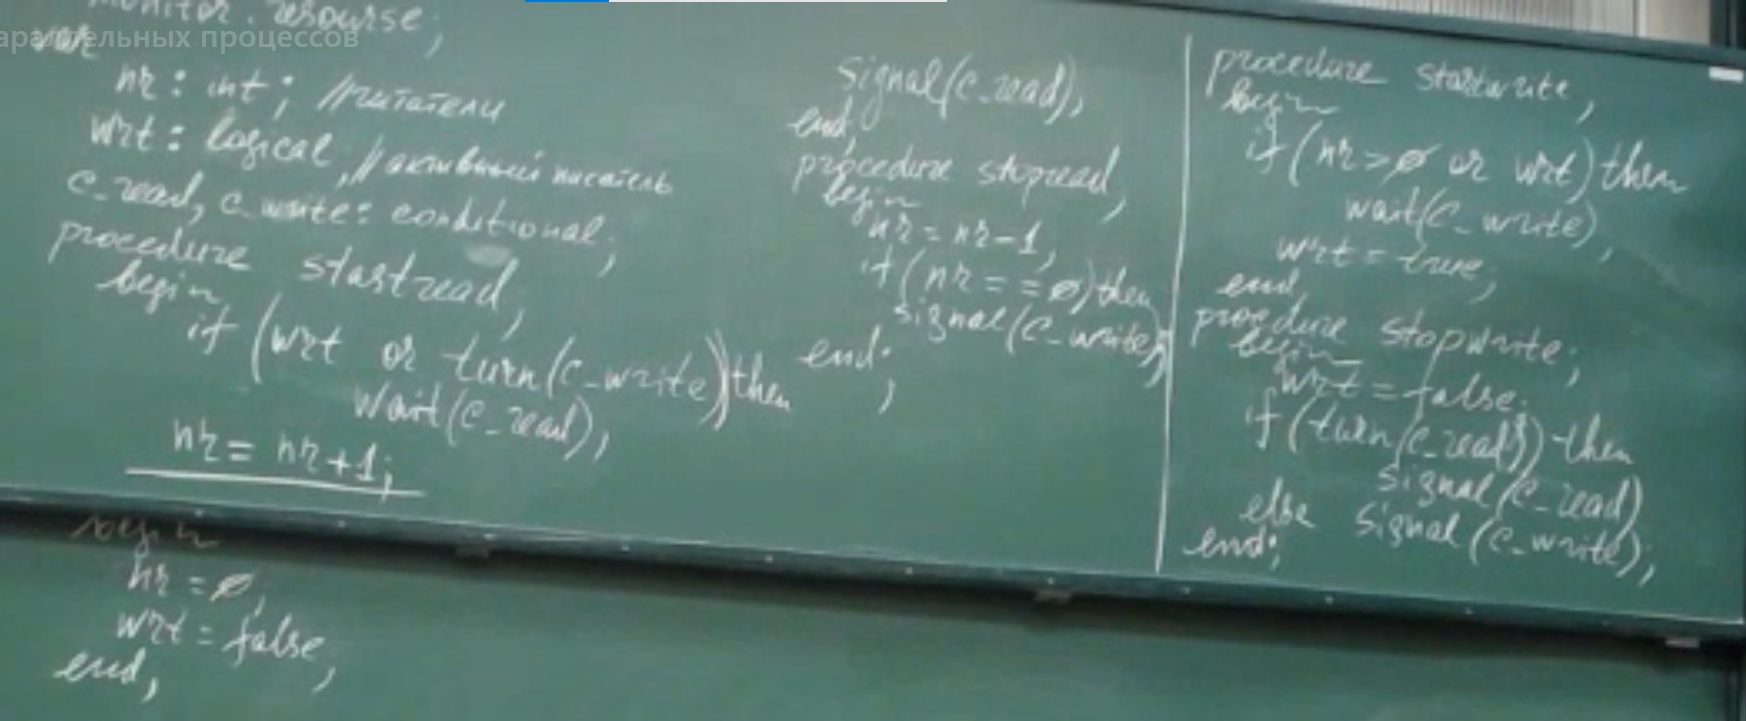 monitor resourse;
параллельных процессов
var
nr : int; //читатели
wrt : logical, //активный писатель
c_read, c_write: conditional;
procedure startread;
begin
if (wrt or turn(c_write)) then
wait(c_read);
nr = nr+1;
signal(c_read);
end;
procedure stopread;
begin
nr = nr-1;
if (nr == ø) then
signal(c_write);
end;
procedure startwrite;
begin
if (nr > ø or wrt) then
wait(c_write);
wrt = true;
end
procedure stopwrite;
begin
wrt = false;
if (turn(c_read)) then
signal(c_read)
else signal(c_write);
end;
begin
nr = ø;
wrt = false;
end;